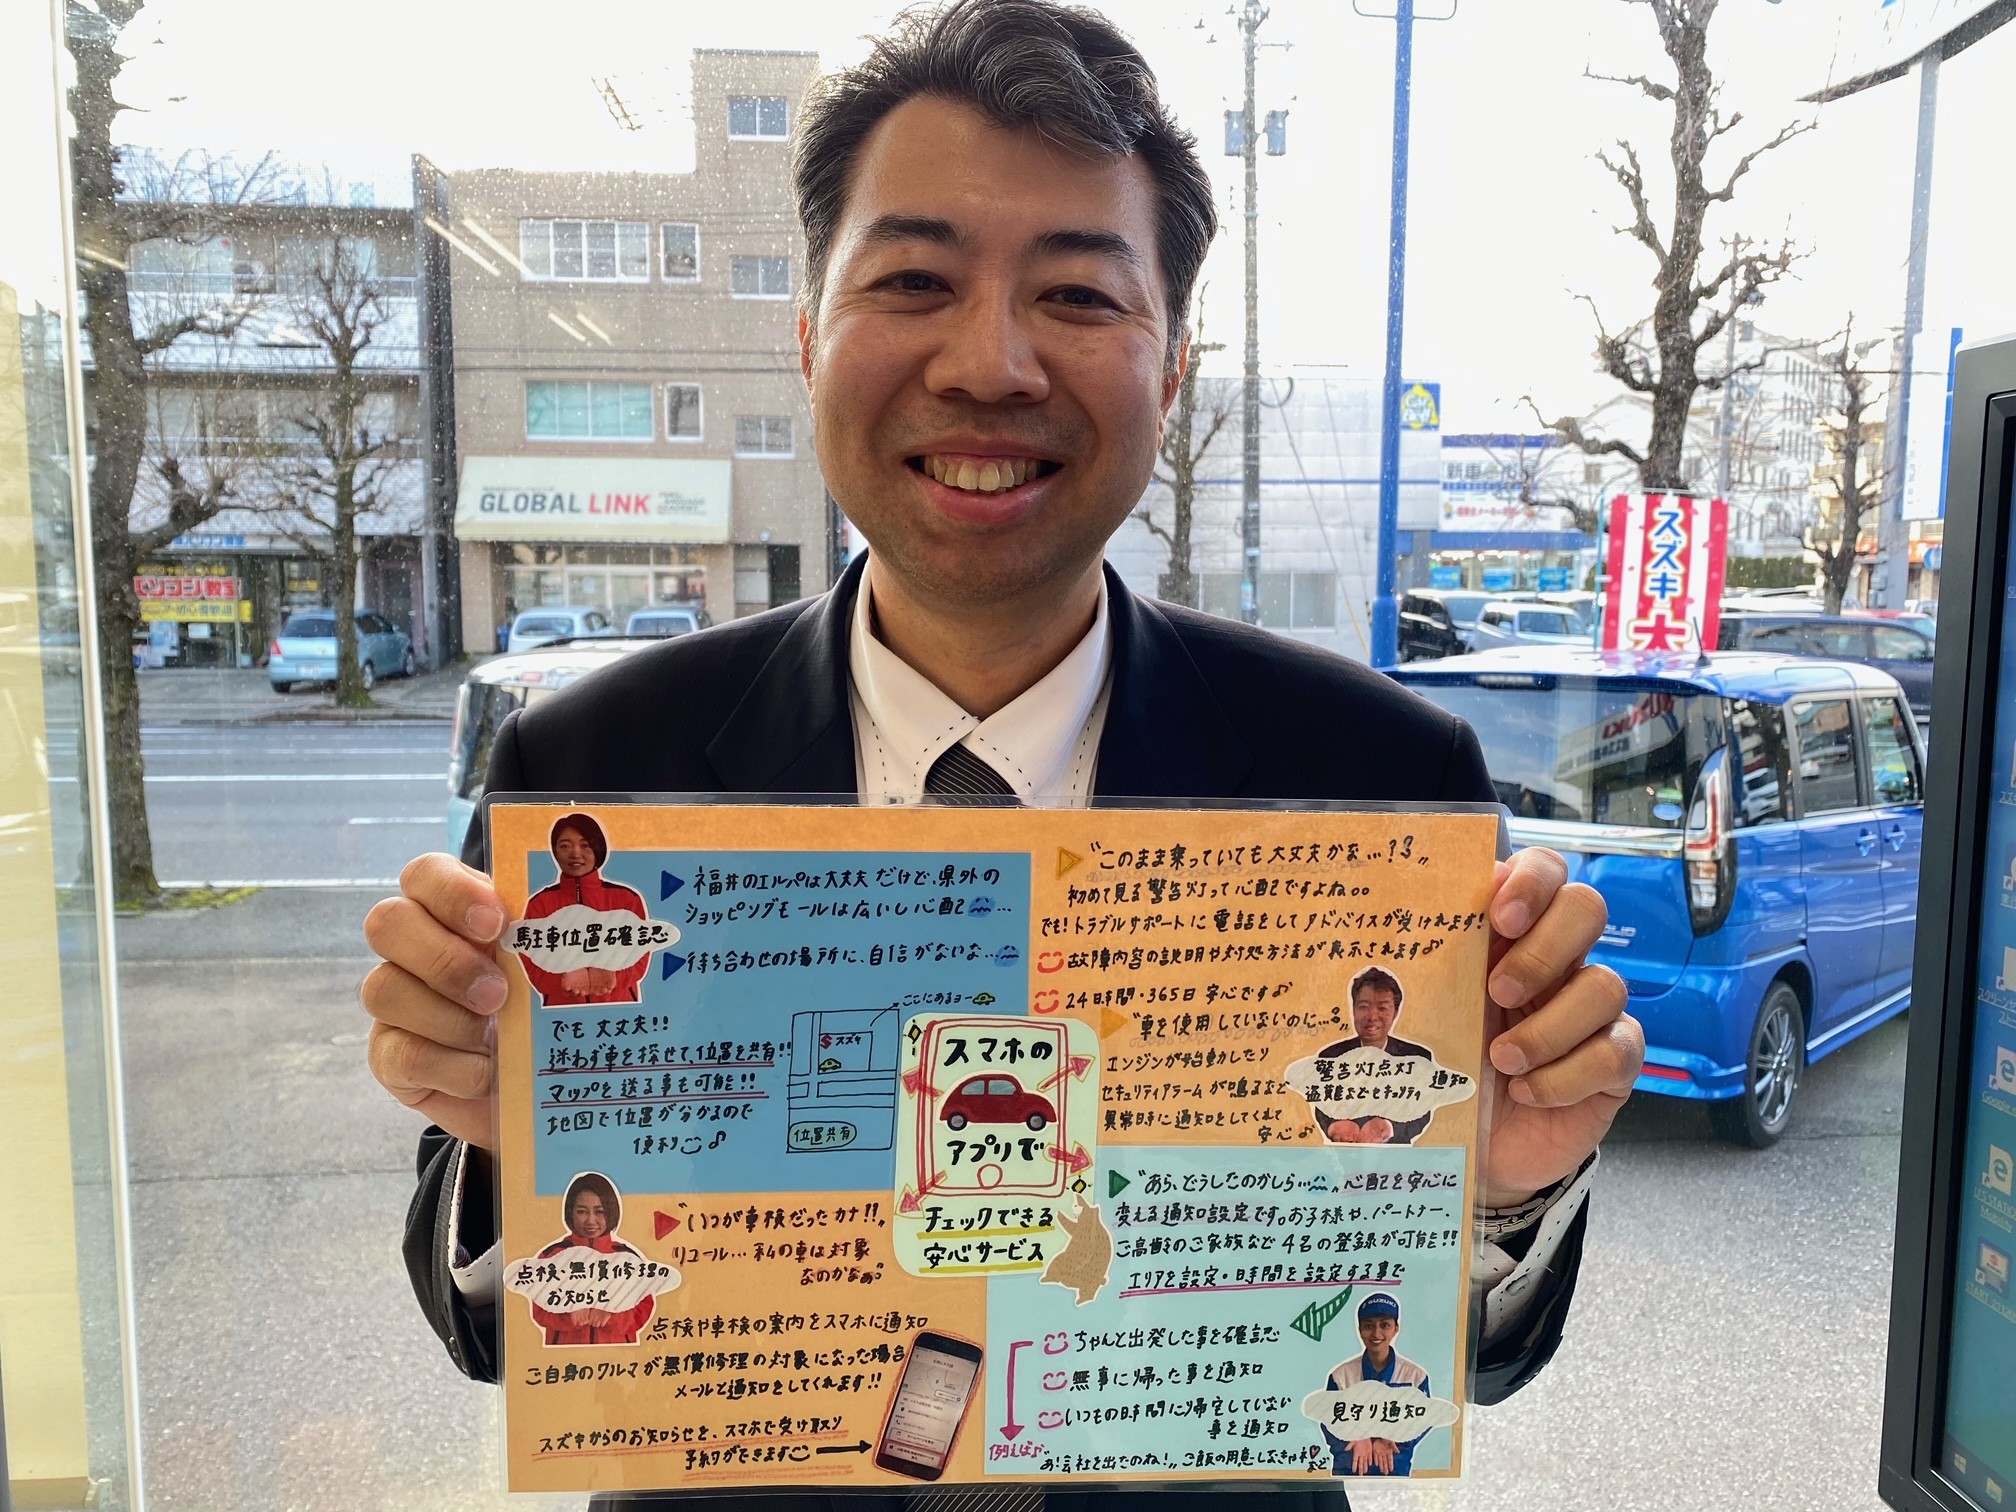 GLOBAL LINK
パソコン教室
新車
スズキ
大
SUZUKI
駐車位置確認
福井のエルパは大丈夫だけど、県外の
ショッピングモールは広いし心配…
待ち合わせの場所に、自信がないな…
でも丈丈夫!!
迷わず車を探せて、位置を共有!!
マップを送る事も可能!!
地図で位置が分かるので
便利♪
ここにあるヨー
スズキ
位置共有
"このまま乗っていても大丈夫かな…??"
初めて見る警告灯って心配ですよね。。
でも!トラブルサポートに電話をしてアドバイスが受けれます!
故障内容の説明や対処方法が表示されます♪
24時間・365日 安心です♪
"車を使用していないのに…?"
エンジンが始動したり
セキュリティアラームが鳴るなど
異常時に通知をしてくれて
安心♪
警告灯点灯
盗難などセキュリティ
通知
スマホの
アプリで
チェックできる
安心サービス
点検・無償修理の
お知らせ
"いつが車検だったカナ!!"
リコール…私の車は対象
なのかなぁ?
点検や車検の案内をスマホに通知
ご自身のクルマが無償修理の対象になった場合
メールと通知をしてくれます!!
スズキからのお知らせを、スマホで受け取り
予約ができます
"あら、どうしたのかしら…"心配を安心に
変える通知設定です。お子様や、パートナー、
ご高齢のご家族など4名の登録が可能!!
エリアを設定・時間を設定する事で
ちゃんと出発した事を確認
無事に帰った事を通知
いつもの時間に帰宅していない
事を通知
例えば♪
"あ!会社を出たのね!"ご飯の用意しなきゃネ♥など
SUZUKI
見守り通知